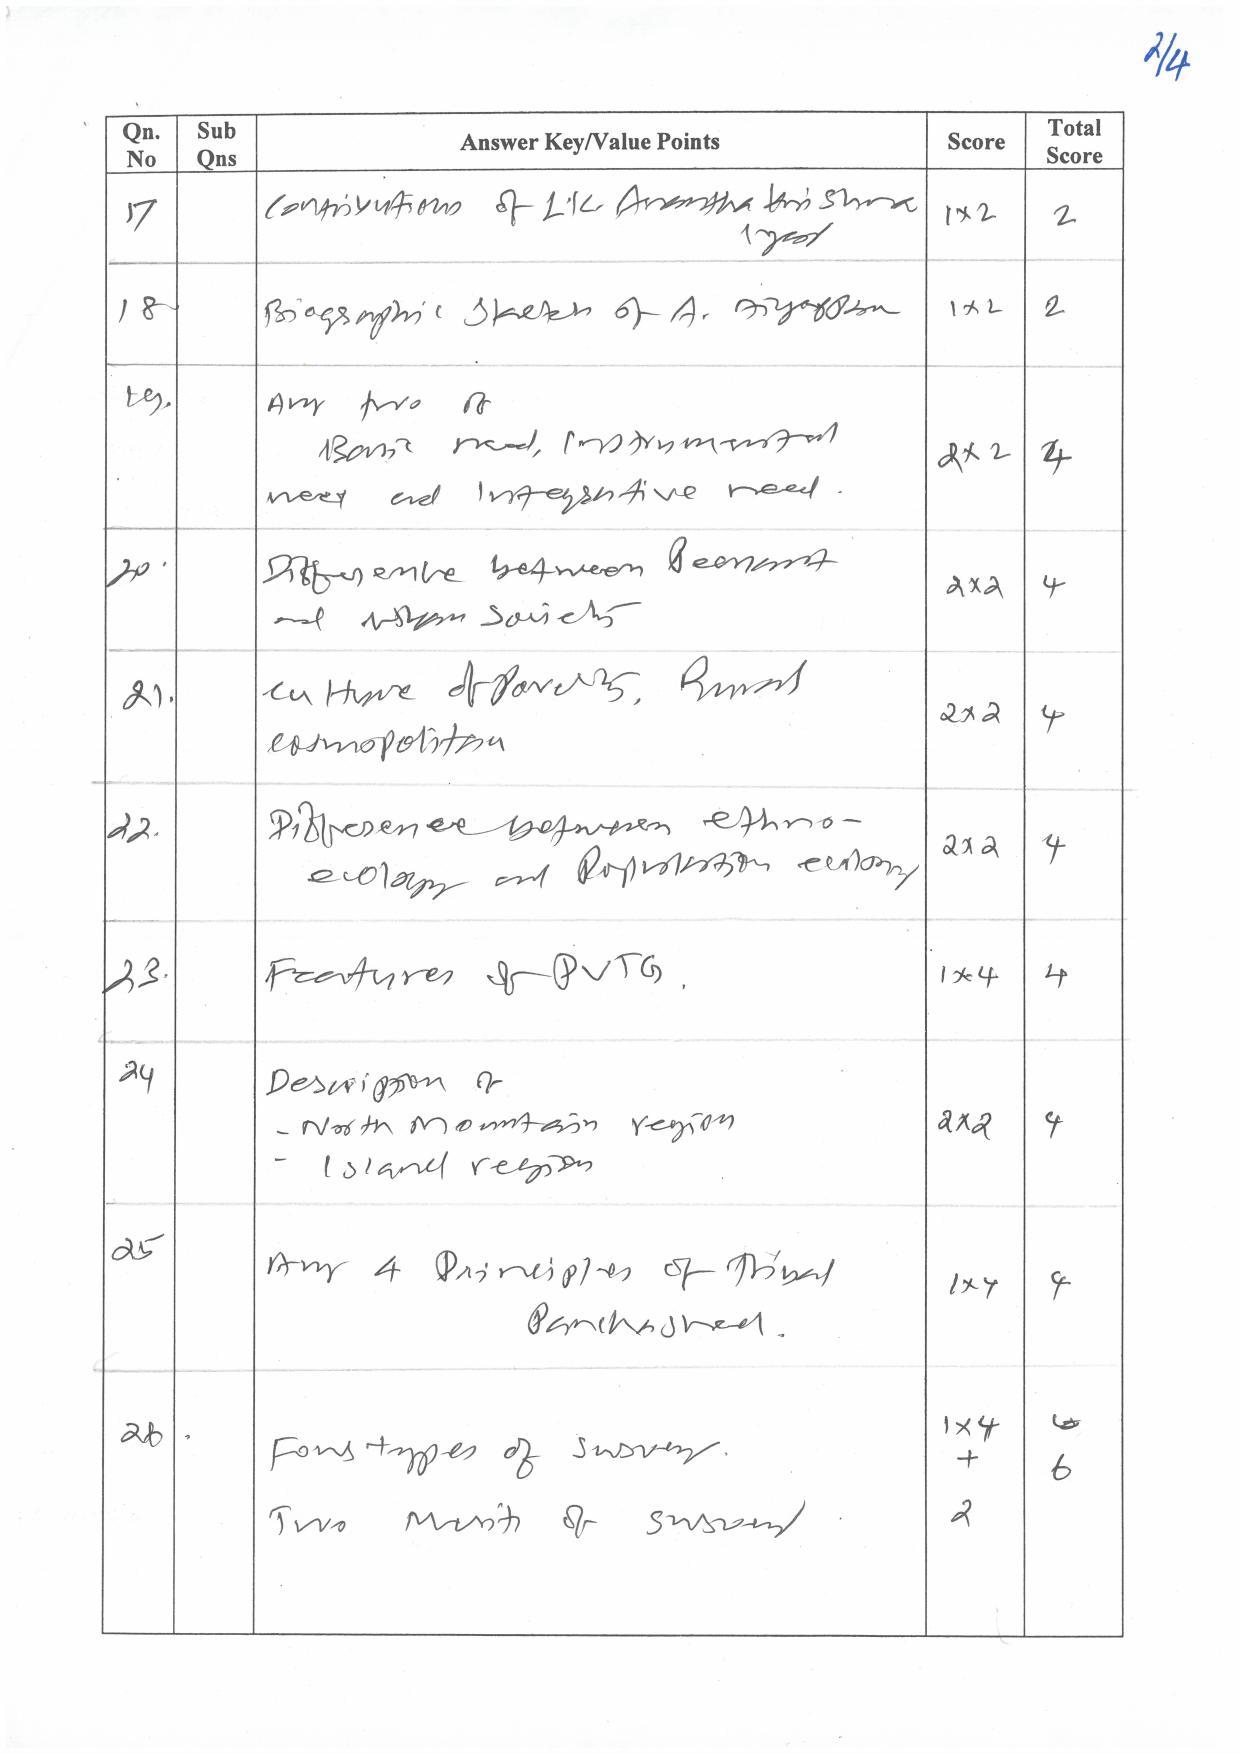 2/4
Qn. No Sub Qns Answer Key/Value Points Score Total Score
17 Contributions of L.K Anantha krishna 1x2 2
Iyer
18 Biographic Sketch of A. Aiyappan 1x2 2
19. Any two of
Basic need, Instrumental 2x2 4
need and Integrative need.
20. Difference between Peasant 2x2 4
and urban Society
21. Culture of Poverty, Rural 2x2 4
cosmopolitan
22. Difference between ethno- 2x2 4
ecology and Population ecology
23. Features of PVTG. 1x4 4
24 Description of
- North Mountain region 2x2 4
- Island region
25 Any 4 Principles of Tribal 1x4 4
Panchasheel.
26. Four types of survey. 1x4 + 6
Two Merit of survey 2